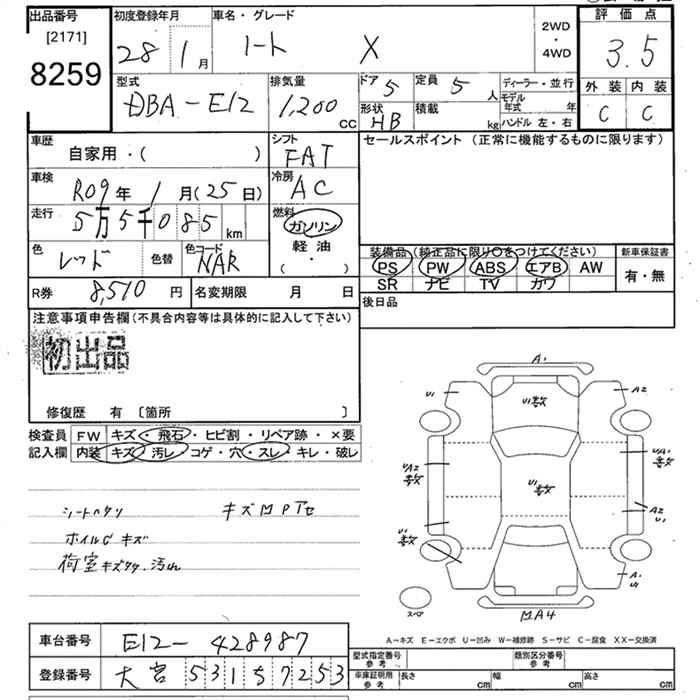 出品番号
[2171]
8259
初度登録年月
28 1 月
車名・グレード
ノート X
2WD
・
4WD
評価点
3.5
外装 内装
C C
型式
DBA-E12
排気量
1,200 cc
ドア 5
定員 5 人
形状 HB
積載 kg
ディーラー・並行
モデル年式 年
ハンドル 左・右
車歴
自家用・( )
シフト
FAT
セールスポイント (正常に機能するものに限ります)
車検
R09年 1 月(25日)
冷房
AC
走行
5万5千085 km
燃料
ガソリン
軽油
( ・ )
色 レッド 色替
色コード
NAR
装備品 (純正品に限り○をつけてください)
PS PW ABS エアB AW
SR ナビ TV カワ
新車保証書
有・無
R券 8,510 円
名変期限 月 日
後日品
注意事項申告欄(不具合内容等は具体的に記入して下さい)
初出品
修復歴 有 〔箇所 〕
検査員
記入欄
FW キズ・飛石・ヒビ割・リペア跡・×要
内装 キズ・汚レ・コゲ・穴・スレ・キレ・破レ
シートヘタリ
ホイルCキズ
荷室キズクタ.汚れ
A1
U1
A2
U1数
UA2
数
UA1
数
U1数
U1
数
A2
U1
A1
スペア
MA4
A-キズ E-エクボ U-凹み W-補修跡 S-サビ C-腐食 XX-交換済
車台番号 E12-428987
登録番号 大宮 531 5 7253
型式指定番号
参考
類別区分番号
参考
車庫証明用
参考
長さ cm
幅 cm
高さ cm